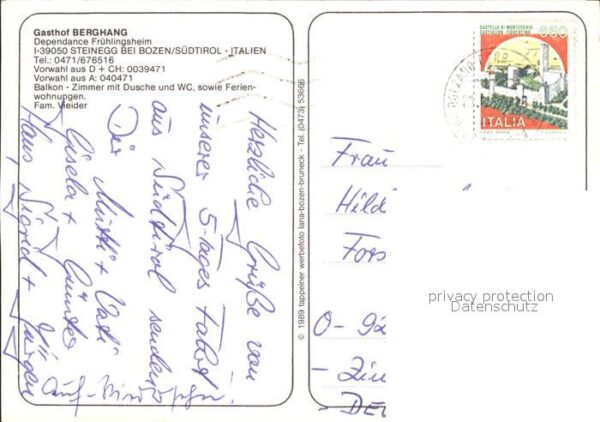 Gasthof BERGHANG
Dependance Frühlingsheim
I-39050 STEINEGG BEI BOZEN/SÜDTIROL - ITALIEN
Tel.: 0471/676516
Vorwahl aus D + CH: 0039471
Vorwahl aus A: 040471
Balkon - Zimmer mit Dusche und WC, sowie Ferien-
wohnungen.
Fam. Vieider
Herzliche Grüße von
unserer 5-Tages Fahrt
aus Südtirol senden
Dir Mutti + Vati
Gisela + Günter
Hans, Sigrid + Jürgen
Auf-Wiedersehn!
© 1989 tappeiner werbefoto lana-bozen-bruneck - Tel. (0473) 53666
CASTELLO DI MONTECCHIO
CASTIGLION FIORENTINO
650
ITALIA
Frau
Hild
Fors
O-92
- Zin
- DE
privacy protection
Datenschutz